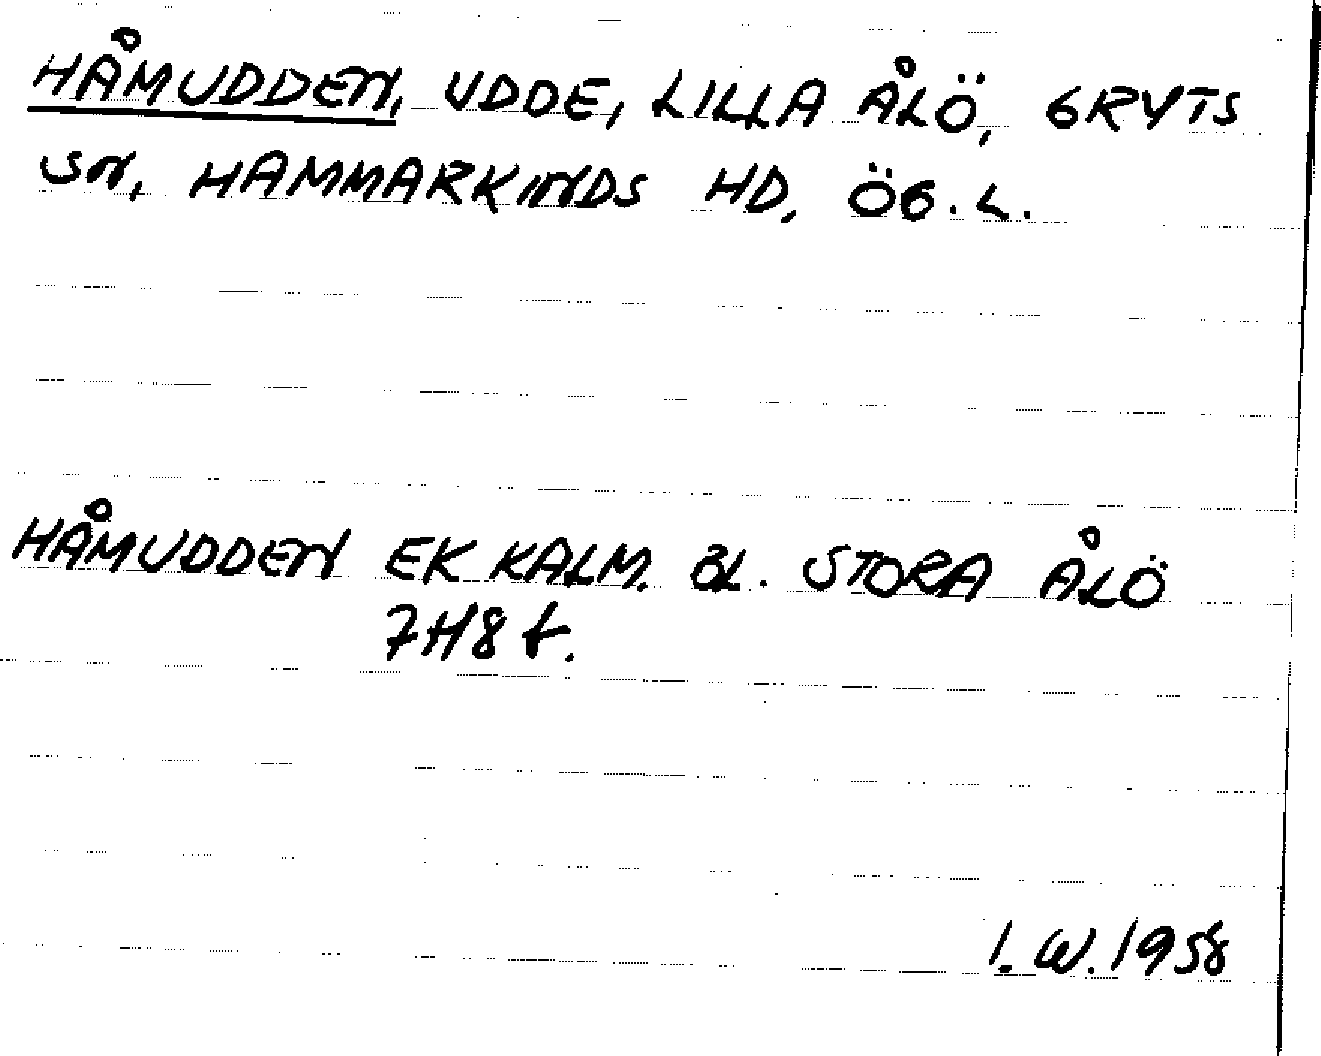 HÅMUDDEN, UDDE, LILLA ÅLÖ, GRYTS
SN, HAMMARKINDS HD, ÖG. L.
HÅMUDDEN EK KALM. BL. STORA ÅLÖ
7H8f.
I. W. 1958